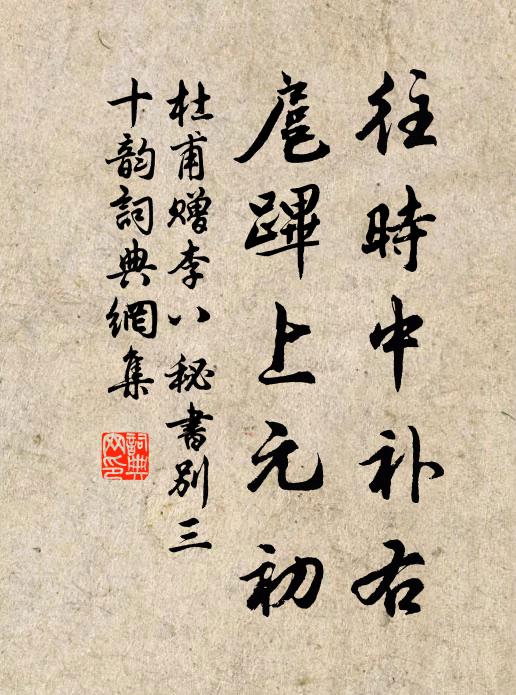 往時中补右
扈蹕上元初
杜甫赠李八秘書別三
十韵詞典網集
詞典
网印